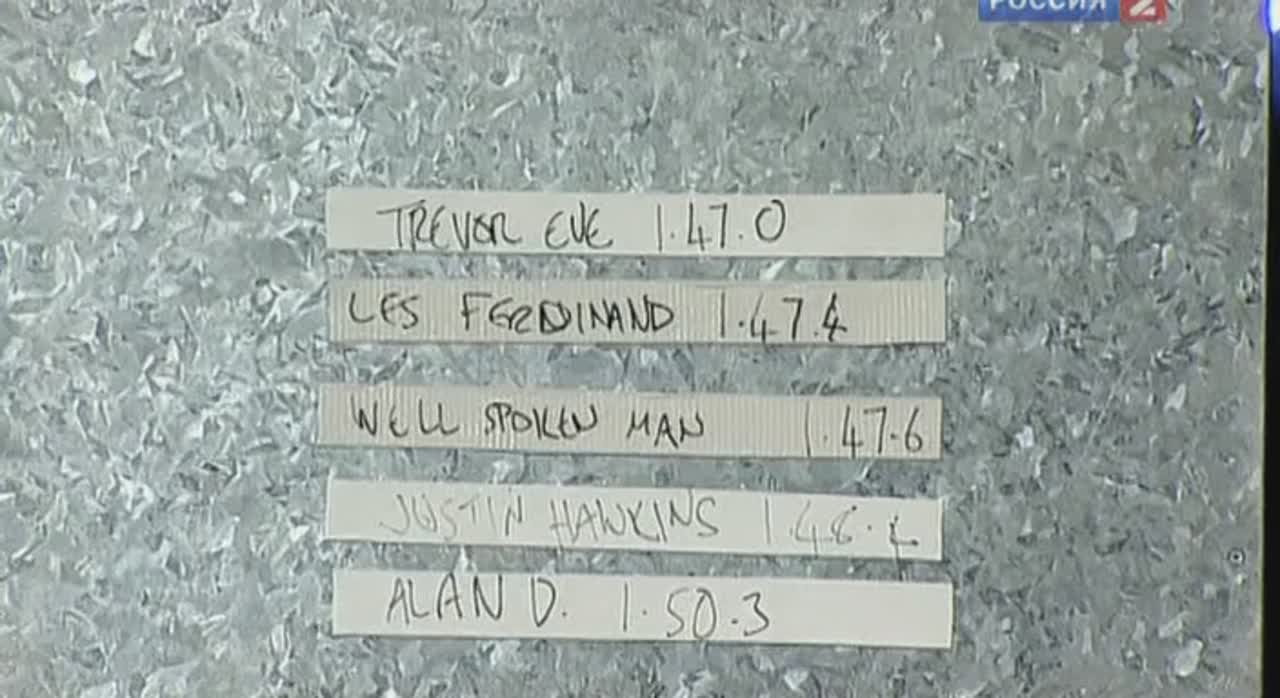 РОССИЯ 2
TREVOR EVE 1.47.0
LES FERDINAND 1.47.4
WELL SPOKEN MAN 1.47.6
JUSTIN HAWKINS
ALAN D. 1.50.3